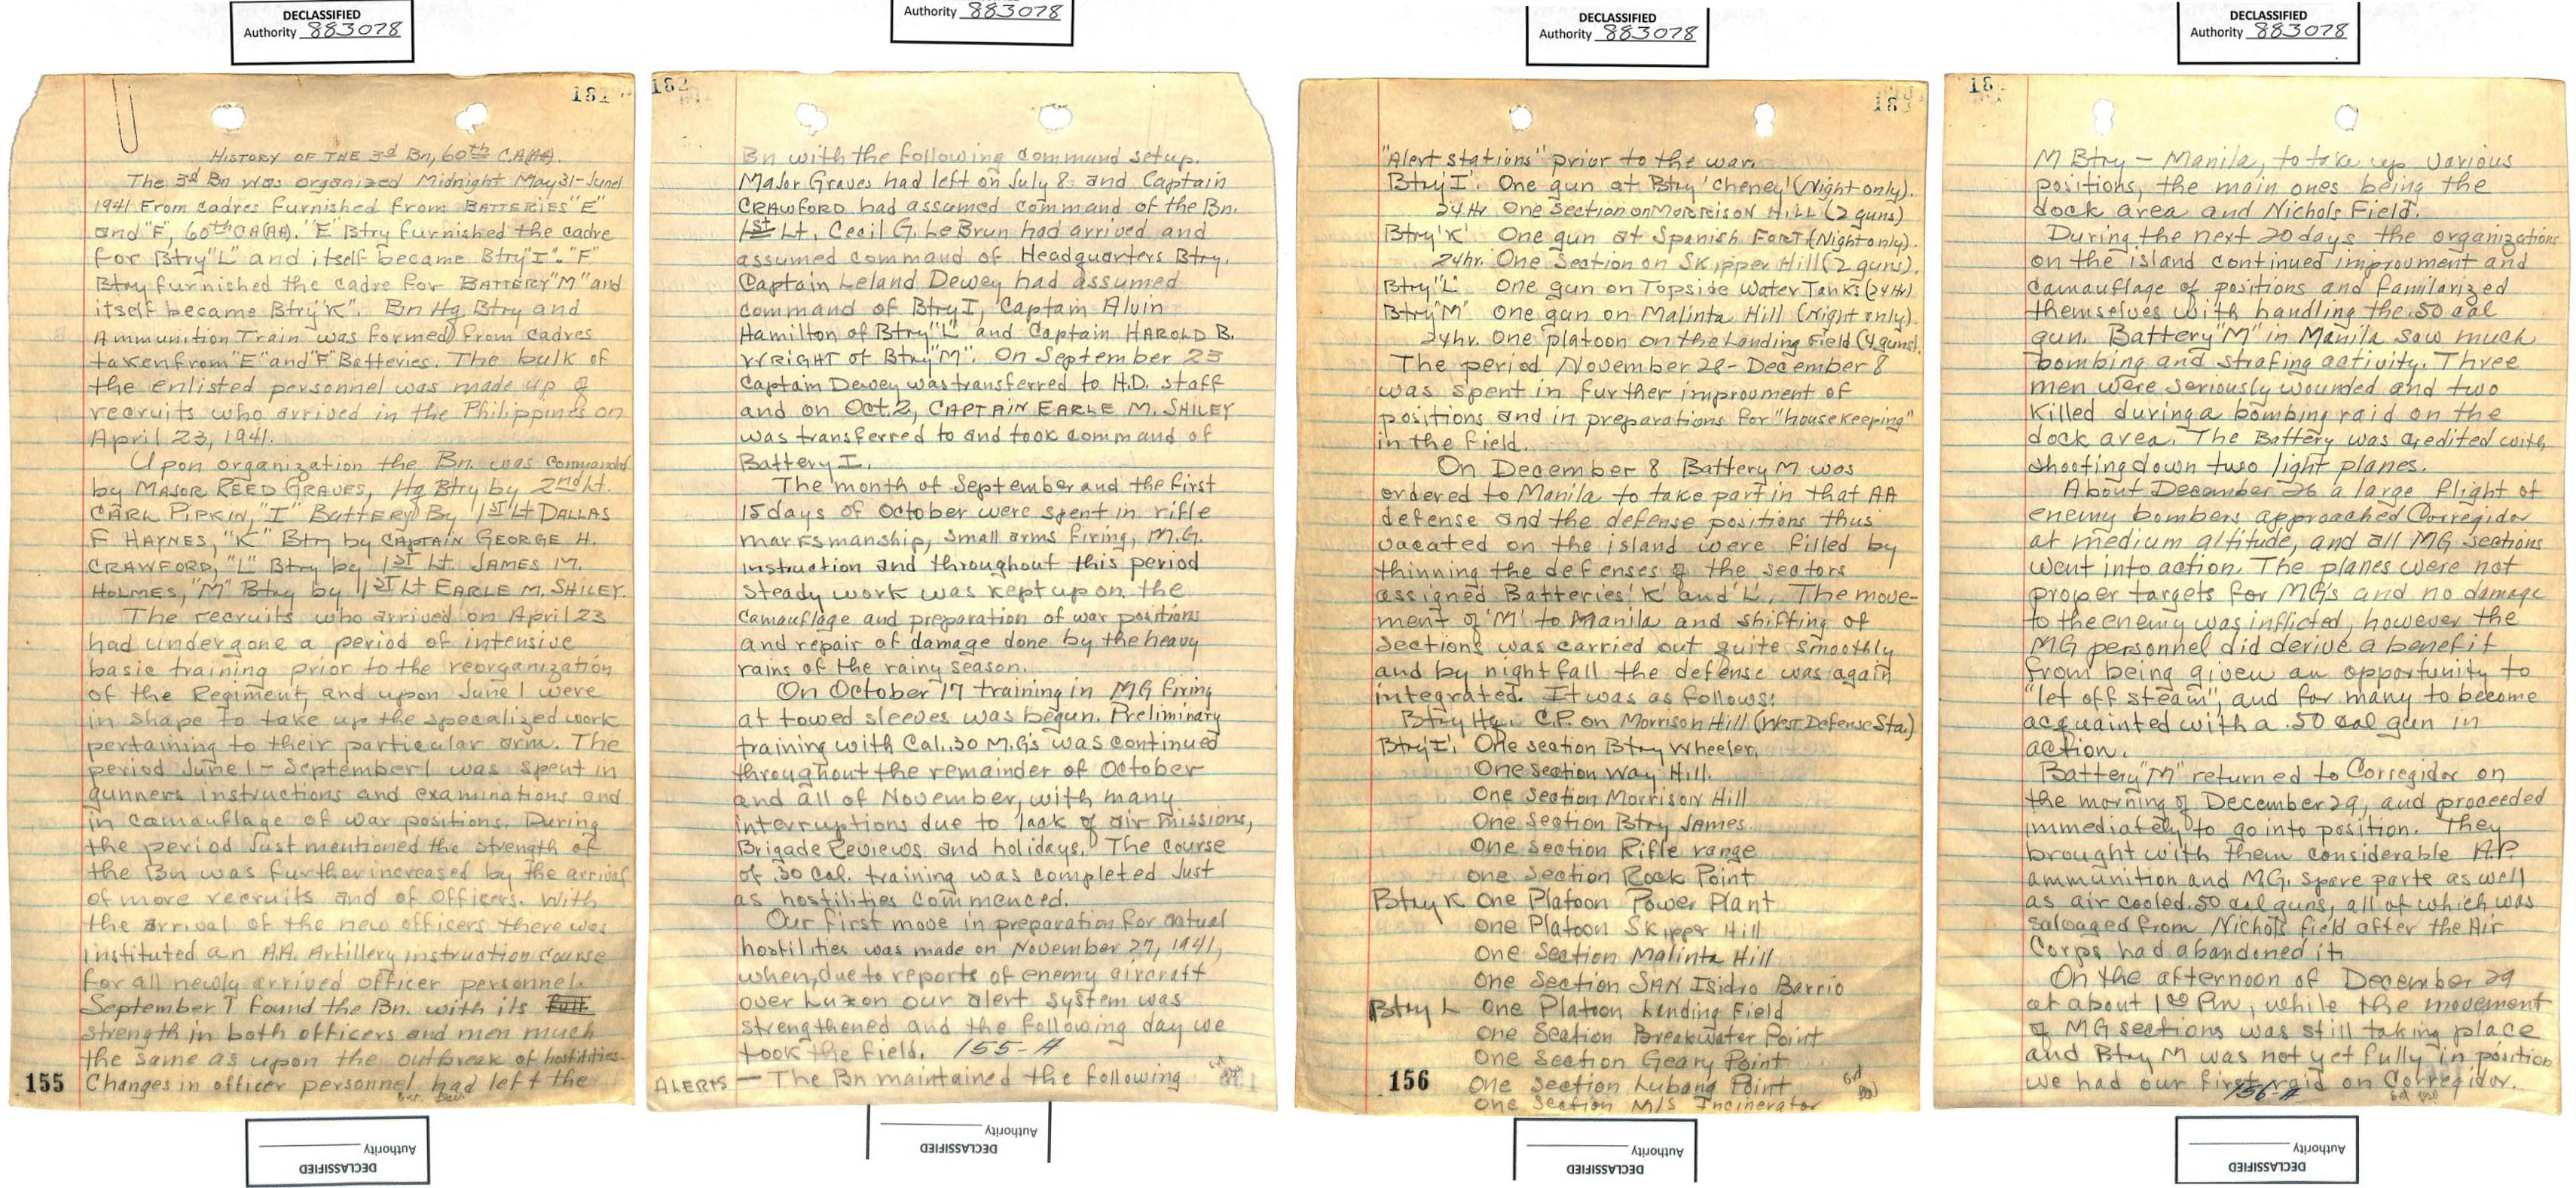 DECLASSIFIED
Authority 883078
181
HISTORY OF THE 3d Bn, 60th CA(AA).
The 3d Bn was organized Midnight May 31-June 1
1941 From cadres furnished from BATTERIES "E"
and "F", 60th CA(AA). "E" Btry furnished the cadre
for Btry "L" and itself became Btry "I". "F"
Btry furnished the cadre for BATTERY "M" and
itself became Btry "K". Bn Hq Btry and
Ammunition Train was formed from cadres
taken from "E" and "F" Batteries. The bulk of
the enlisted personnel was made up of
recruits who arrived in the Philippines on
April 23, 1941.
Upon organization the Bn. was commanded
by MAJOR REED GRAVES, Hq Btry by 2nd Lt.
CARL PIPKIN, "I" BATTERY By 1ST Lt DALLAS
F HAYNES, "K" Btry by CAPTAIN GEORGE H.
CRAWFORD, "L" Btry by 1ST Lt. JAMES M.
HOLMES, "M" Btry by 1ST Lt EARLE M. SHILEY.
The recruits who arrived on April 23
had undergone a period of intensive
basic training prior to the reorganization
of the Regiment, and upon June 1 were
in shape to take up the specalized work
pertaining to their particular arm. The
period June 1 - September 1 was spent in
gunners instructions and examinations and
in camauflage of war positions. During
the period Just mentioned the strength of
the Bn was further increased by the arrival
of more recruits and of officers. With
the arrival of the new officers there was
instituted an A.A. Artillery instruction course
for all newly arrived officer personnel.
September 1 found the Bn. with its
strength in both officers and men much
the same as upon the outbreak of hostilities.
155 Changes in officer personnel had left the
Authority
DECLASSIFIED
Authority 883078
182
Bn with the following command setup.
Major Graves had left on July 8 and Captain
CRAWFORD had assumed command of the Bn.
1st Lt. Cecil G. Le Brun had arrived and
assumed command of Headquarters Btry.
Captain Leland Dewey had assumed
command of Btry I, Captain Alvin
Hamilton of Btry "L" and Captain HAROLD B.
WRIGHT of Btry "M". On September 23
Captain Dewey was transferred to H.D. staff
and on Oct. 2, CAPTAIN EARLE M. SHILEY
was transferred to and took command of
Battery I.
The month of September and the first
15 days of October were spent in rifle
marksmanship, small arms firing, M.G.
instruction and throughout this period
steady work was kept up on the
camauflage and preparation of war positions
and repair of damage done by the heavy
rains of the rainy season.
On October 17 training in MG firing
at towed sleeves was begun. Preliminary
training with Cal. .30 M.G's was continued
throughout the remainder of October
and all of November, with many
interruptions due to lack of air missions,
Brigade Reviews and holidays. The course
of 30 Cal. training was completed Just
as hostilities commenced.
Our first move in preparation for actual
hostilities was made on November 27, 1941,
when, due to reports of enemy aircraft
over Luzon our alert system was
strengthened and the following day we
took the field. 155-A
ALERTS - The Bn maintained the following
Authority
DECLASSIFIED
DECLASSIFIED
Authority 883078
183
"Alert stations" prior to the war.
Btry 'I'. One gun at Btry 'Cheney' (Night only).
24 Hr One Section on MORRISON HILL (2 guns)
Btry 'K' One gun at Spanish FORT (Night only).
24hr. One Section on Skipper Hill (2 guns).
Btry "L" One gun on Topside Water Tanks (24 Hr)
Btry "M" One gun on Malinta Hill (Night only)
24hr. One platoon on the Landing Field (4 guns).
The period November 28 - December 8
was spent in further improvment of
positions and in preparations for "housekeeping"
in the field.
On December 8 Battery M was
ordered to Manila to take part in that AA
defense and the defense positions thus
vacated on the island were filled by
thinning the defenses of the sectors
assigned Batteries 'K' and 'L'. The move-
ment of 'M' to Manila and shifting of
sections was carried out quite smoothly
and by night fall the defense was again
integrated. It was as follows:
Btry Hq. C.P. on Morrison Hill (West Defense Sta.)
Btry 'I'. One section Btry Wheeler.
One section Way Hill.
One Section Morrison Hill
One Section Btry James
One section Rifle range
one section Rock Point
Btry K One Platoon Power Plant
one Platoon Skipper Hill
one Section Malinta Hill
One Section SAN Isidro Barrio
Btry L One Platoon Landing Field
One Section Breakwater Point
One Section Geary Point
156 One Section Lubang Point
One Section M/S Incinerator
Authority
DECLASSIFIED
DECLASSIFIED
Authority 883078
18
M Btry - Manila, to take up various
positions, the main ones being the
dock area and Nichols Field.
During the next 20 days the organizations
on the island continued improvment and
camauflage of positions and familarized
themselves with handling the .50 cal
gun. Battery "M" in Manila saw much
bombing and strafing activity. Three
men were seriously wounded and two
killed during a bombing raid on the
dock area. The Battery was credited with
shooting down two light planes.
About December 26 a large flight of
enemy bombers approached Corregidor
at medium altitude, and all MG sections
went into action. The planes were not
proper targets for MG's and no damage
to the enemy was inflicted, however the
MG personnel did derive a benefit
from being given an opportunity to
"let off steam", and for many to become
acquainted with a .50 cal gun in
action.
Battery "M" returned to Corregidor on
the morning of December 29, and proceeded
immediately to go into position. They
brought with them considerable A.P.
ammunition and M.G. spare parts as well
as air cooled .50 cal guns, all of which was
salvaged from Nichols field after the Air
Corps had abandoned it.
On the afternoon of December 29
at about 1 00 Pm, while the movement
of MG sections was still taking place
and Btry M was not yet fully in position
we had our first raid on Corregidor.
156-A
Authority
DECLASSIFIED